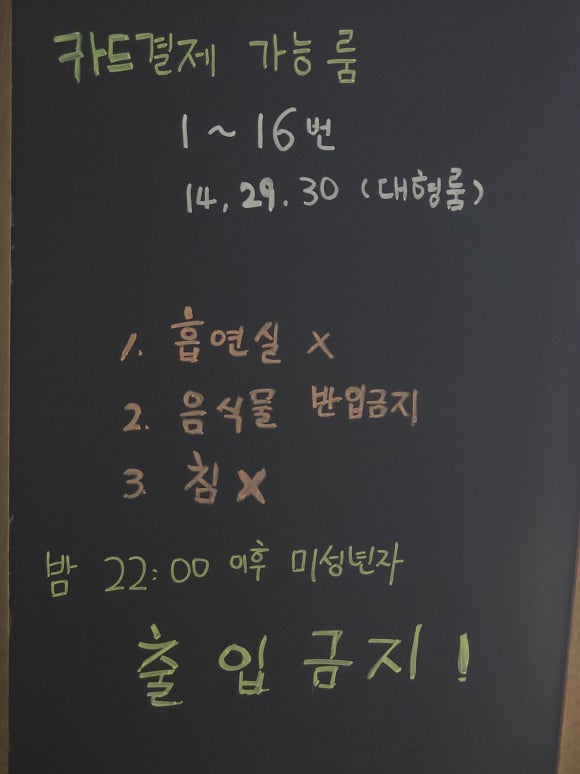 카드결제 가능룸
1~16번
14, 29. 30 (대형룸)
1. 흡연실 X
2. 음식물 반입금지
3. 침 X
밤 22:00 이후 미성년자
출입금지!